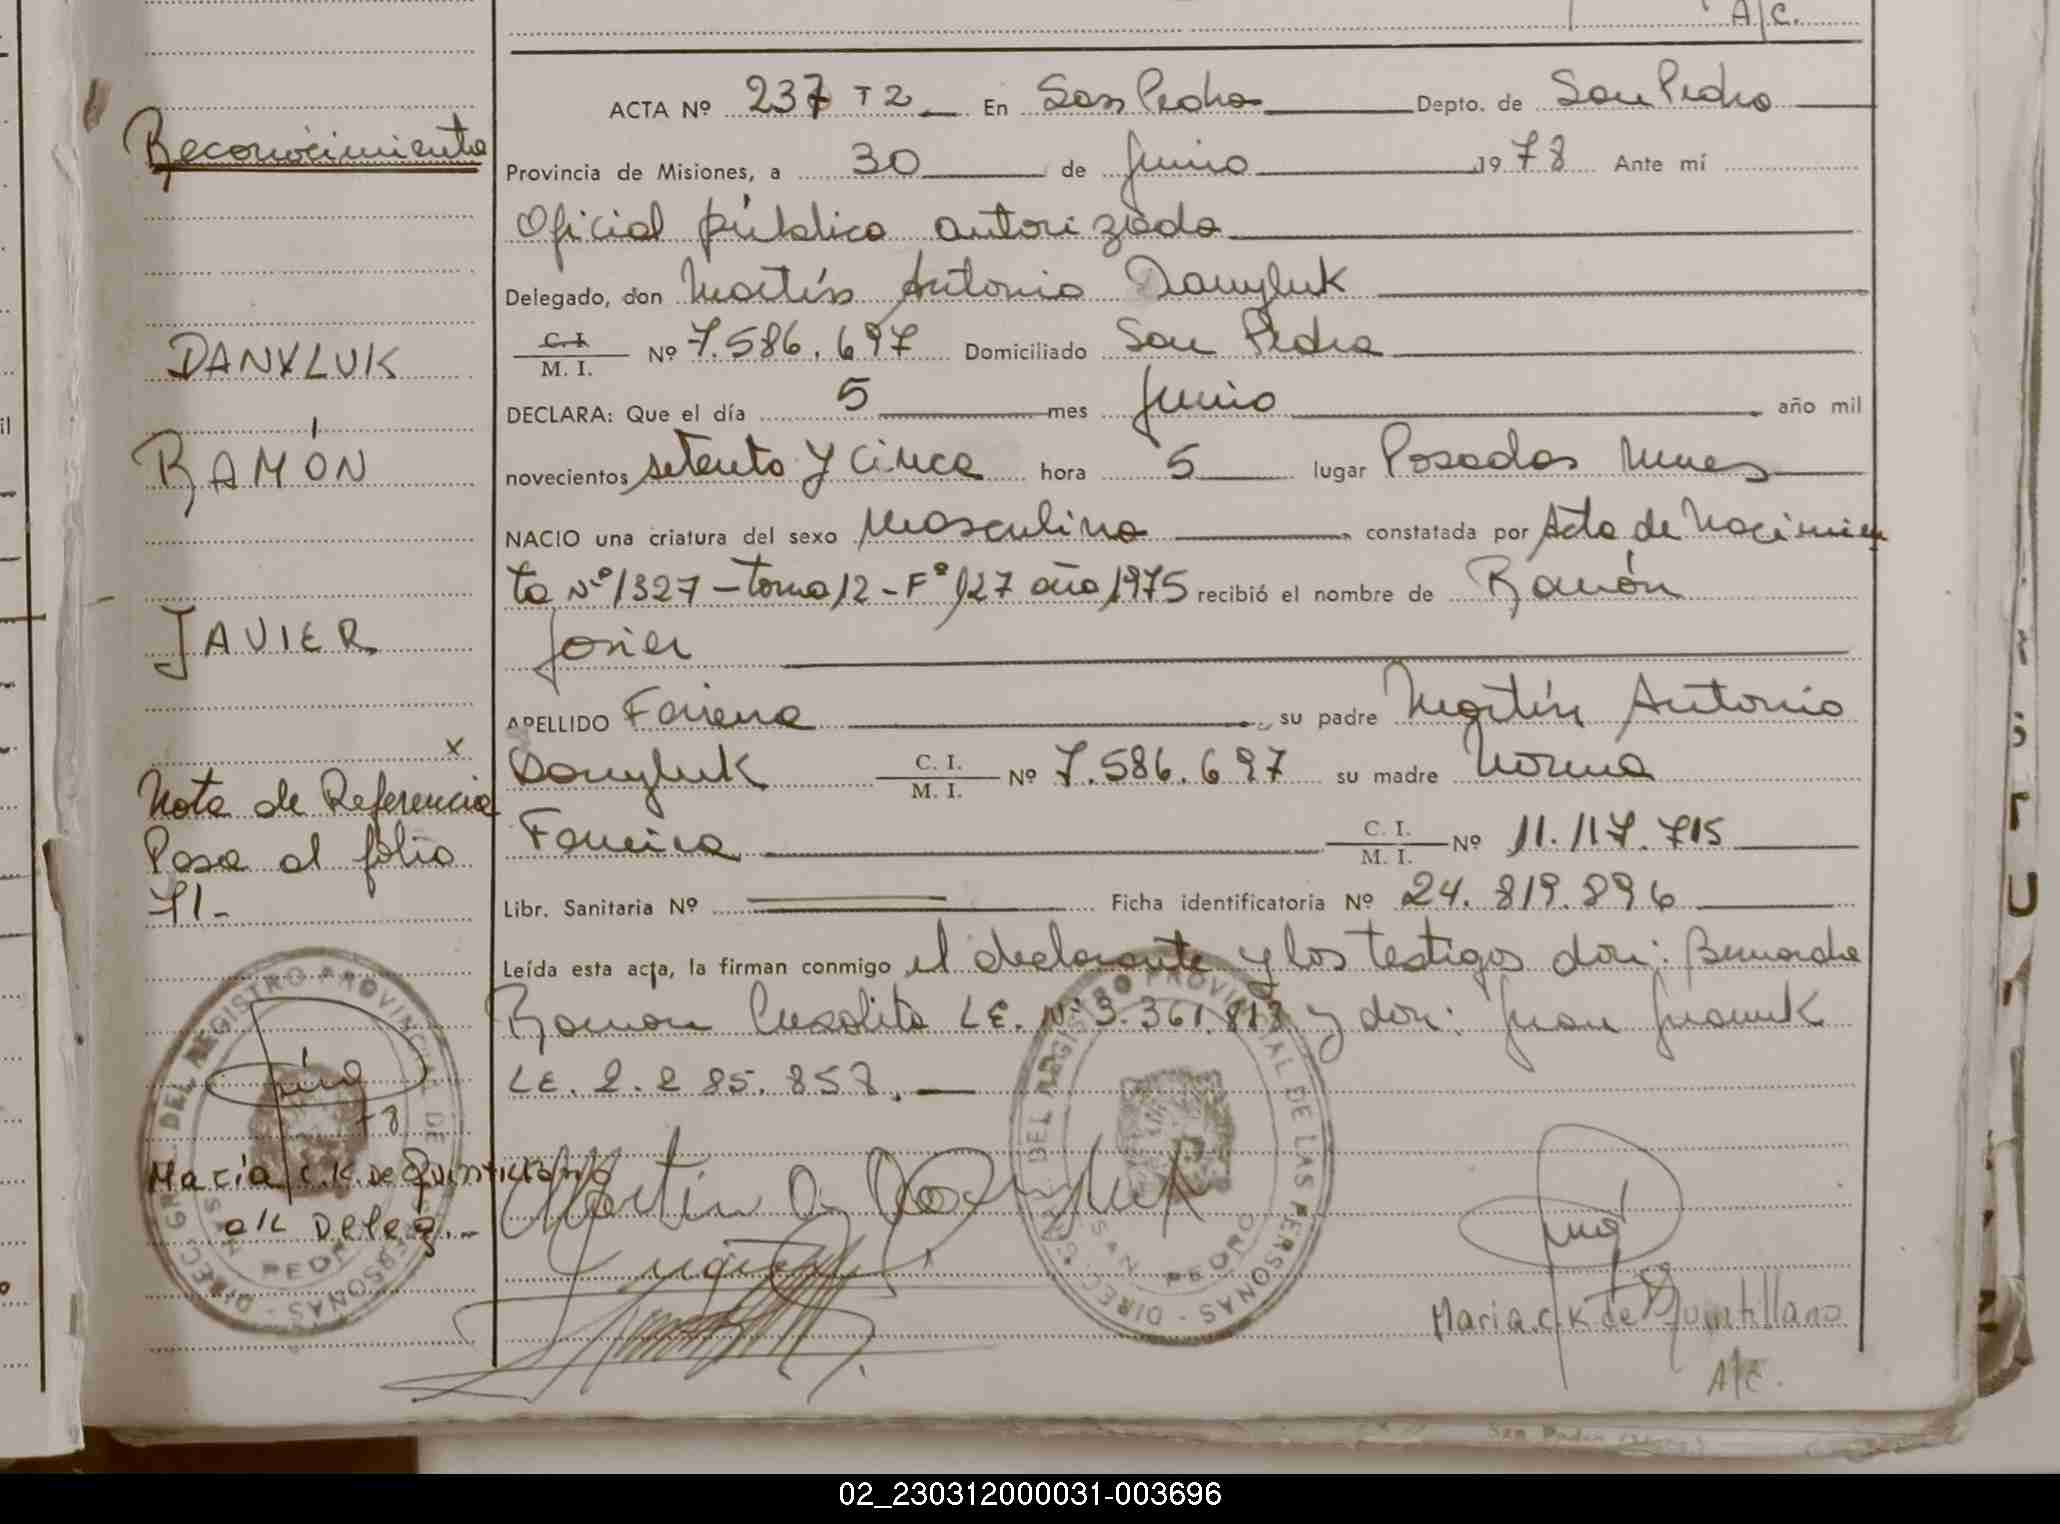 A/C.
Reconocimiento
DANYLUK
RAMÓN
JAVIER
x
Nota de Referencia
Pasa al folio
71-
DIRECC. GRAL. DEL REGISTRO PROVINCIAL DE LAS PERSONAS - SAN PEDRO
Maria C.K. de Quintillano
a/c Deleg.-
ACTA Nº 237 T2 En San Pedro Depto. de San Pedro
Provincia de Misiones, a 30 de Junio 1978 Ante mí
Oficial público autorizado
Delegado, don Martín Antonio Danyluk
C. I. M. I. Nº 7.586.697 Domiciliado San Pedro
DECLARA: Que el día 5 mes Junio año mil
novecientos setenta y cinco hora 5 lugar Posadas Mnes
NACIO una criatura del sexo Masculino constatada por Acta de Nacimien
to Nº 1327 - tomo 12 - Fº 127 año 1975 recibió el nombre de Ramón
Javier
APELLIDO Ferreira su padre Martín Antonio
Danyluk C. I. M. I. Nº 7.586.697 su madre Norma
Ferreira C. I. M. I. Nº 11.117.715
Libr. Sanitaria Nº Ficha identificatoria Nº 24.819.896
Leída esta acta, la firman conmigo el declarante y los testigos don: Bernardo
Ramon LE. Nº 3.361.813 y don: Juan
LE. 2.285.857. -
Martin A. Danyluk
DIRECC. GRAL. DEL REGISTRO PROVINCIAL DE LAS PERSONAS - SAN PEDRO
Maria C.K de Quintillano
A/C.
02_230312000031-003696